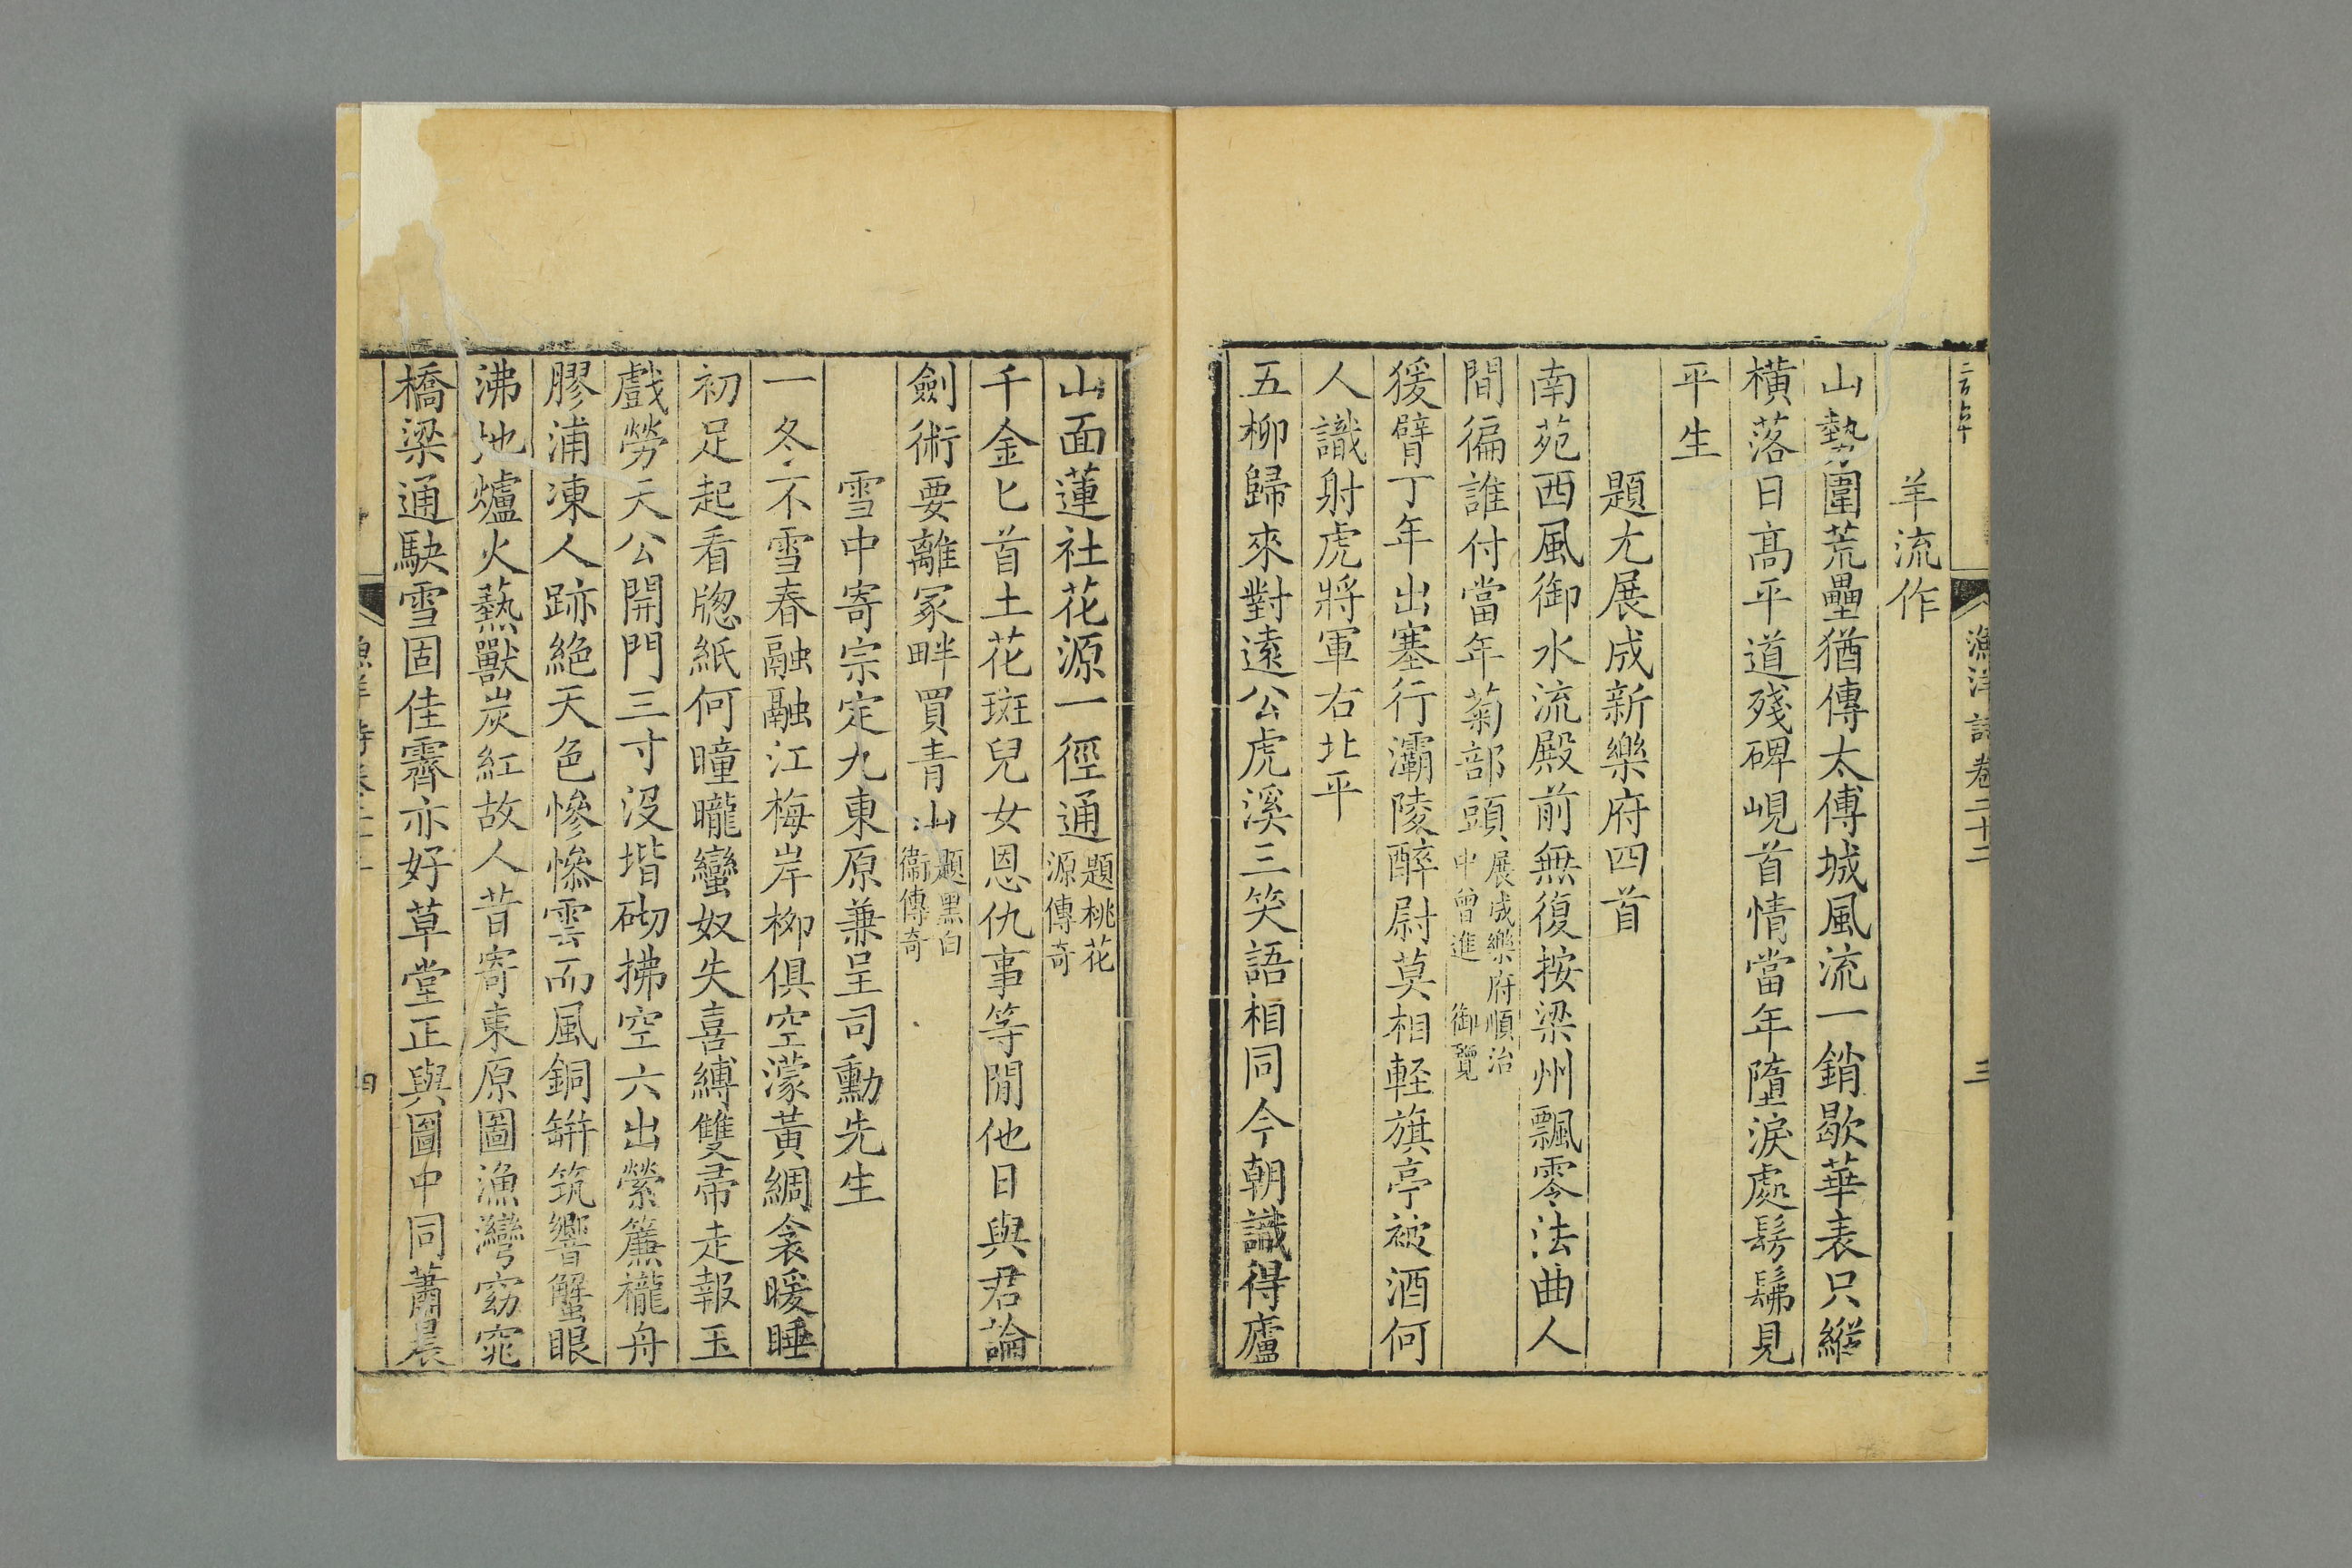 漁洋詩卷二十二
三
羊流作
山勢圍荒壘猶傳太傅城風流一銷歇華表只縱
橫落日高平道殘碑峴首情當年墮淚處髣髴見
平生
題尤展成新樂府四首
南苑西風御水流殿前無復按梁州飄零法曲人
間徧誰付當年菊部頭展成樂府順治
中曾進 御覽
猨臂丁年出塞行灞陵醉尉莫相輕旗亭被酒何
人識射虎將軍右北平
五柳歸來對遠公虎溪三笑語相同今朝識得廬
山面蓮社花源一徑通題桃花
源傳奇
千金匕首土花斑兒女恩仇事等閒他日與君論
劍術要離冢畔買青山題黑白
衞傳奇
雪中寄宗定九東原兼呈司勳先生
一冬不雪春融融江梅岸柳俱空濛黃綢衾暖睡
初足起看牕紙何曈曨蠻奴失喜縛雙帚走報玉
戲勞天公開門三寸沒堦砌拂空六出縈簾櫳舟
膠浦凍人跡絕天色慘慘雲而風銅缾筑響蟹眼
沸地爐火爇獸炭紅故人昔寄東原圖漁灣窈窕
橋梁通駃雪固佳霽亦好草堂正與圖中同蕭晨
四